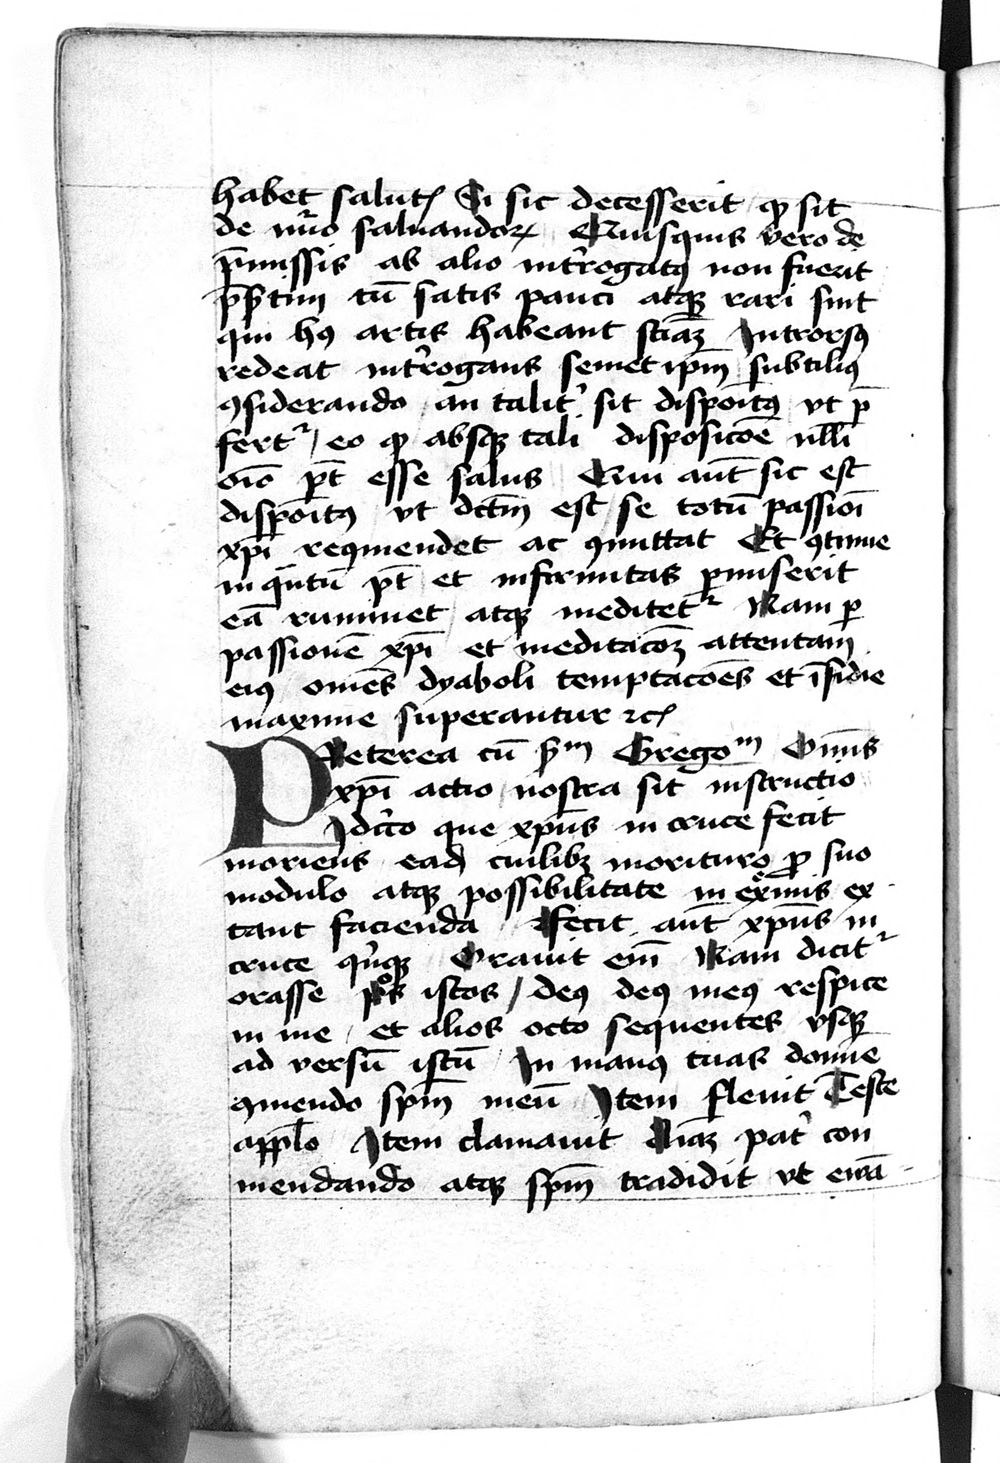 habet salutꝭ Si sic decesserit / ꝙ sit
de nũo saluandoꝝ Quisquis vero de
p̄missis ab alio int̉rogatꝰ non fuerit
p̄ꝑtim cũ satis pauci atqꝫ rari sint
qui hꝰ artis habeant sciaꝫ Introrsꝰ
redeat int̉rogans semet ip̄m subtiliꝰ
ꝯsiderando an talit̉ sit dispoĩtꝰ vt p̄
fertᷣ / eo ꝙ absqꝫ tali disposicõe nlli
oĩo põt esse salus Qui aũt sic est
dispoĩtꝰ vt dctm̄ est se totũ passiõi
xp̄i reꝯmendet ac ꝯmittat Et ꝯtinue
inq̃ntũ põt et infirmitas ꝑmiserit
eã ruminet atqꝫ meditetᷣ Nam ꝑ
passionẽ xp̄i et meditacõꝫ attentam
eiꝰ omẽs dyaboli temptacõẽs et ĩsidie
maxime superantur ⁊cꝭ
PReterea cũ s̄m Gregom Om̄is
xp̄i actio nostra sit instructio
Idcirco que xp̄us in cruce fecit
moriens eadꝫ cuilibꝫ morituro ꝓ suo
modulo atqꝫ possibilitate in ext̊mis ex
tant facienda Fecit aũt xp̄us in
cruce q̉nqꝫ Orauit em̄ Nam dicitᷣ
orasse p̊s istos / deꝰ deꝰ meꝰ respice
in me / et alios octo sequentes vsqꝫ
ad versũ istũ / In manꝰ tuas domie
ꝯmendo spm̄ meũ Item fleuit Teste
appl̄o Item clamauit Aiaꝫ pat̉ con
mendando atqꝫ spm̄ tradidit vt ewã